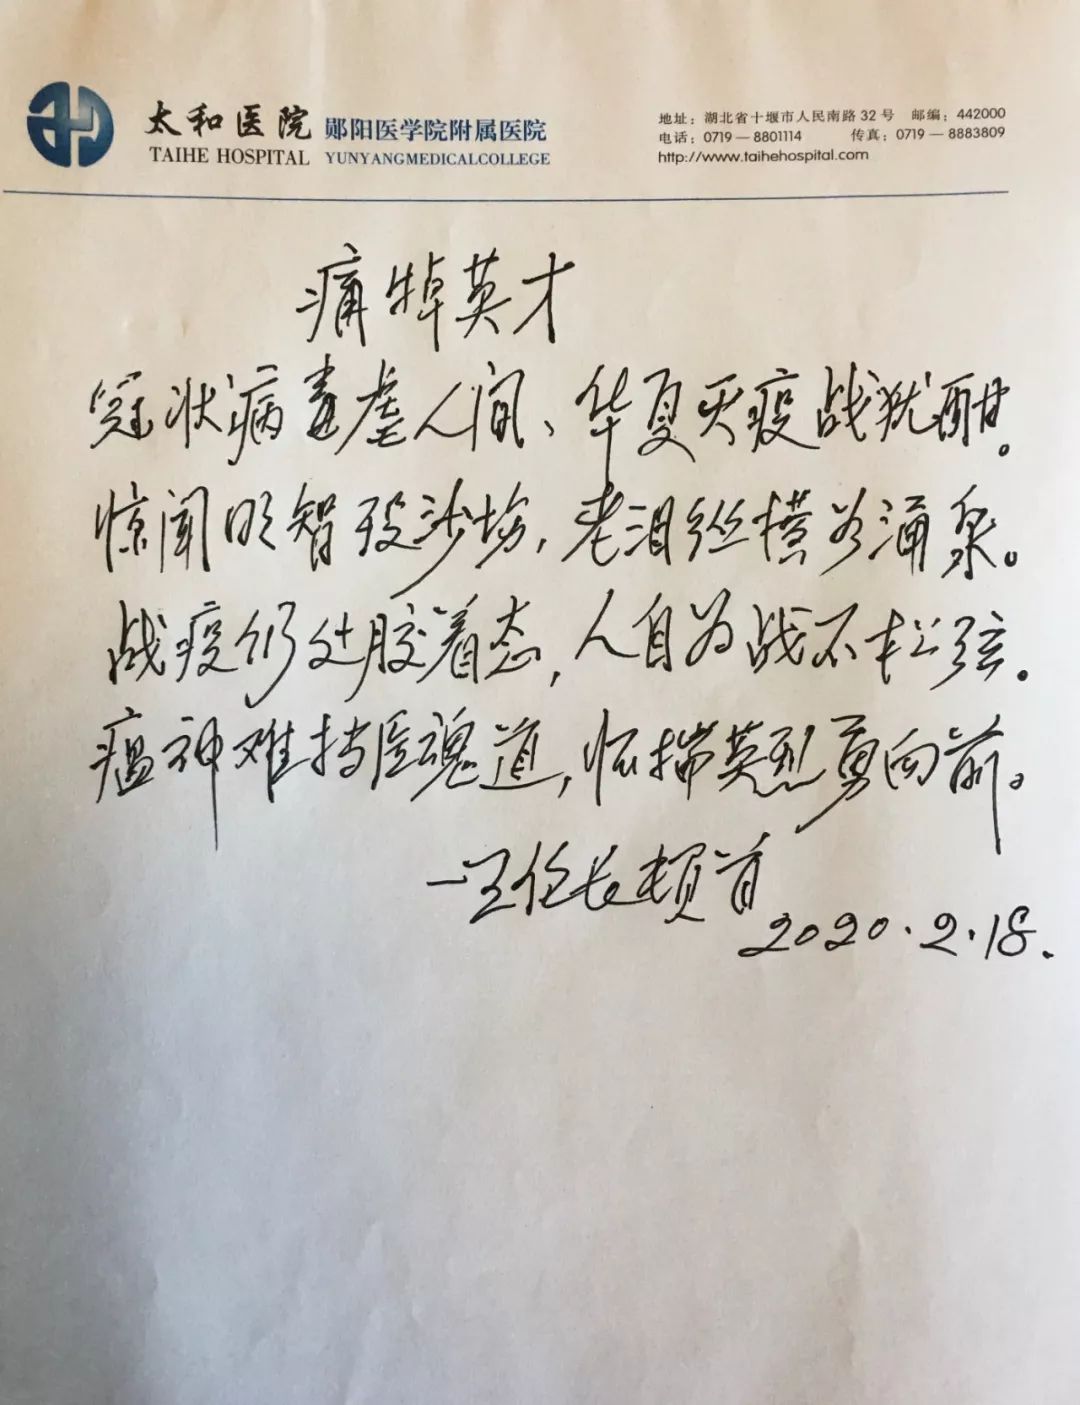 太和医院 郧阳医学院附属医院
TAIHE HOSPITAL YUNYANGMEDICALCOLLEGE
地址：湖北省十堰市人民南路 32 号 邮编：442000
电话：0719－8801114 传真：0719－8883809
http://www.taihehospital.com
痛悼英才
冠状病毒虐人间、华夏灭疫战犹酣。
惊闻明智殁沙场，老泪纵横为涌泉。
战疫仍处胶着态，人自为战不松弦。
瘟神难挡医魂道，怀揣英烈勇向前。
一王任长顿首
2020.2.18.